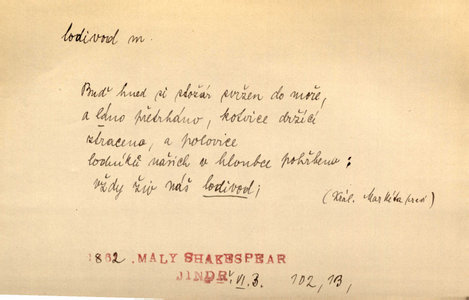 lodivod m.
Buď hned si stožár svržen do moře,
a láno přetrháno, kotvice držící
ztracena, a polovice
lodníků našich v hloubce pohřbena:
vždy živ náš lodivod;
(Král. Markéta praví)
1862. MALY SHAKESPEAR
JINDŘ. VI. 3. 102, 13,